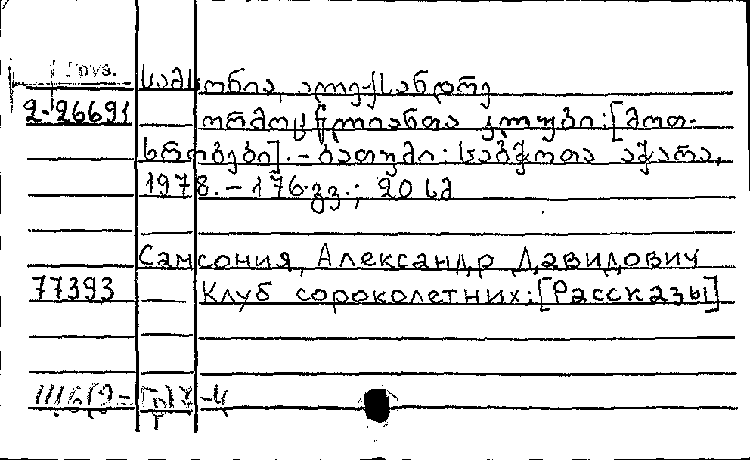 Груз.
სამსონია, ალექსანდრე
2-26691 ორმოცწლიანთა კლუბი: [მოთ-
ხრობები]. - ბათუმი: საბჭოთა აჭარა,
1978. - 176.გვ.; 20 სმ
Самсония, Александр Давидович
77393 Клуб сороколетних: [Рассказы]